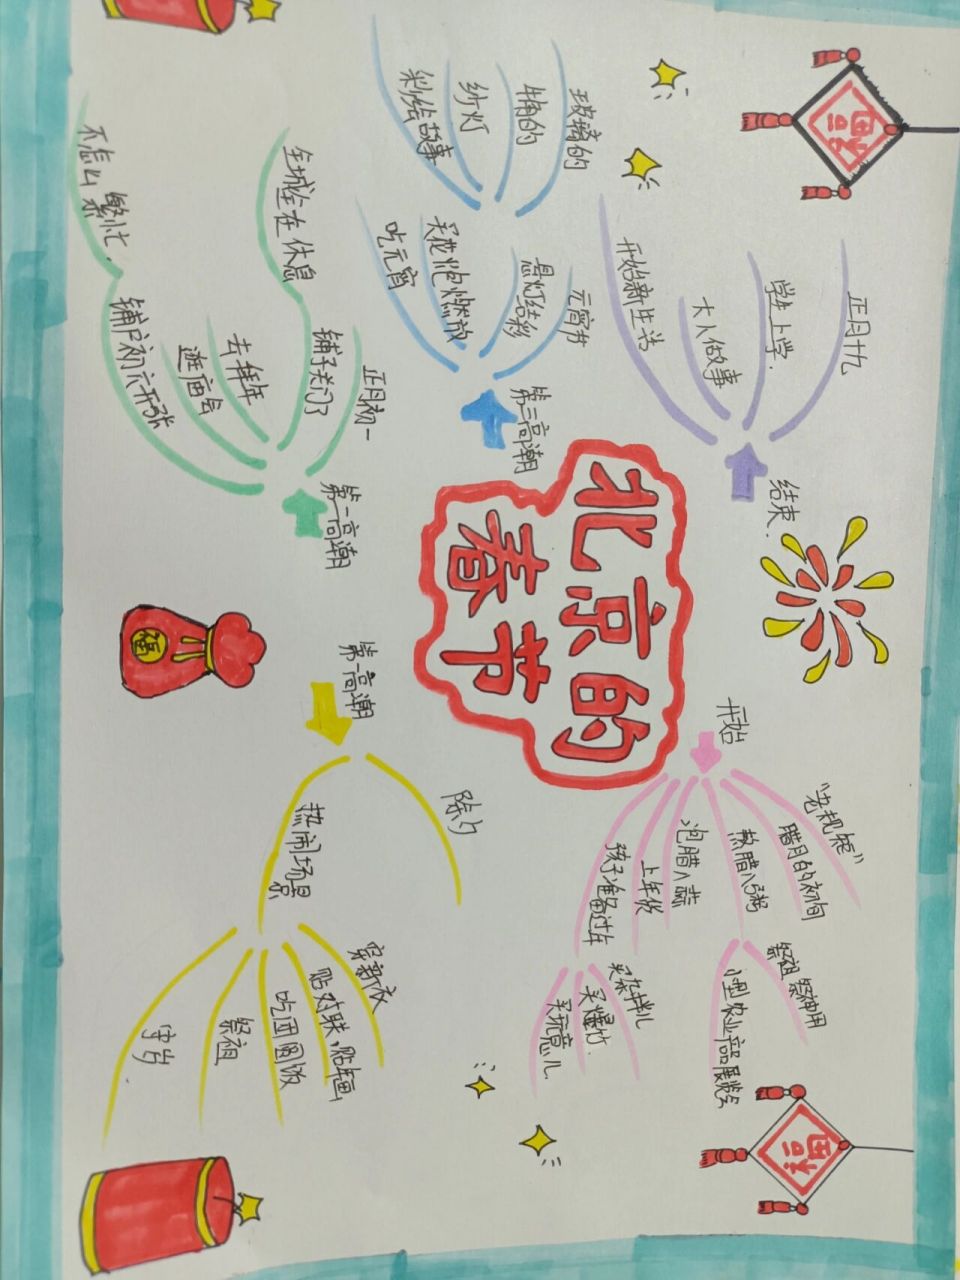 北京的
春节
开始
"老规矩"
腊月的初旬
熬腊八粥
祭祖祭神用
小型农业产品展览会
泡腊八蒜
上年货
孩子准备过年
买杂拌儿
买爆竹.
买玩意儿.
第一高潮
除夕
热闹场景
穿新衣
贴对联,贴年画
吃团圆饭
祭祖
守岁
第二高潮
正月初一
铺子关门了
全城全在休息
去拜年
逛庙会
铺户初六开张
不怎么繁忙.
第三高潮
元宵节
悬灯结彩
玻璃的
牛角的
纱灯
彩绘故事
买花炮燃放
吃元宵
结束.
正月十九
学生上学.
大人做事
开始新生活
福
福
福